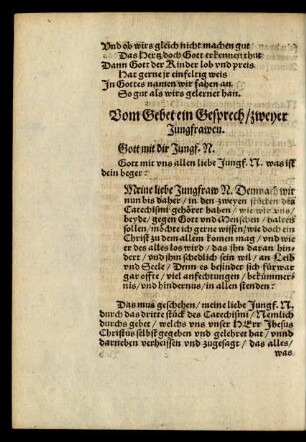 Vnd ob wirs gleich nicht machen gut
Das Hertz doch Gott erkennen thut
Dann Gott der Kinder lob vnd preis
Hat gerne jr einfeltig weis
In Gottes namen wir fahen an.
So gut als wirs gelernet han.
Vom Gebet ein Gesprech / zweyer
Jungfrawen.
Gott mit dir Jungf. N.
Gott mit vns allen liebe Jungf. N. was ist
dein beger?
Meine liebe Jungfraw N. Demnach wir
nun bis daher / in den zweyen stücken des
Catechismi gehöret haben / wie wir vns /
beyde / gegen Gott vnd Menschen / halten
sollen / möchte ich gerne wissen / wie doch ein
Christ zu dem allem komen mag / vnd wie
er des alles los wird / das jhn daran hin-
dert / vnd jhm schedlich sein wil / an Leib
vnd Seele / Denn es befindet sich fürwar
gar offte / viel anfechtungen / bekümmer-
nis / vnd hindernus / in allen stenden.
Das mus geschehen / meine liebe Jungf. N.
durch das dritte stück des Catechismi / Nemlich
durchs gebet / welchs vns vnser HErr Jhesus
Christus selbst gegeben vnd gelehret hat / vnnd
darneben verheissen vnd zugesagt / das alles /
was